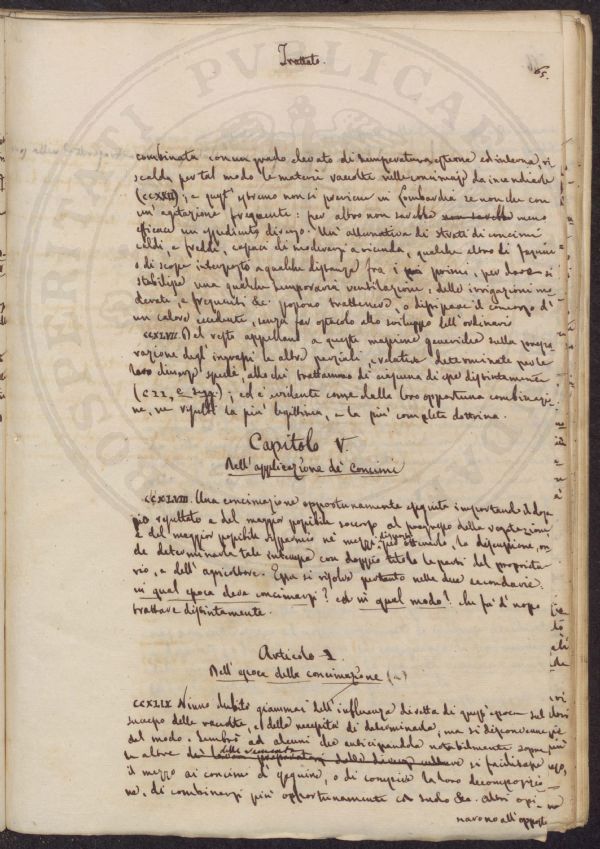 Trattato.
65.
combinata con un grado elevato di temperatura esterne ed interna, ri
scalda per tal modo le materie raccolte nelle concimaje da incendiarle
(CCXXII); a quest'estremo non si perviene in Lombardia se non che con
un'agitazione frequente: per altro non sarebbe meno
efficace un spediente diverso. Un'alternativa di strati di concimi
caldi, e freddi, capaci di moderarsi a vicenda, qualche altro di
o di scope interposto a qualche distanza fra i primi, per si
stabilisce una qualche temporaria ventilazione, delle irrigazioni mo
derate, e frequenti &c. possono trattenere, o dissipare il concorso d'
un calore eccedente, senza far ostacolo allo sviluppo dell'ordinario
CCXLVII. Del resto appellano a queste massime generiche sulla prepa
razione degl'ingrassi le altre parziali, e relative determinate per le
loro diverse specie, allorchè trattammo di ciascuna di esse distintamente
(C22, e segg.); ed è evidente come dalla loro opportuna combinazio
ne, ne risulti la più legittima, e la più completa dottrina.
Capitolo V.
Dell'applicazione de' Concimi
CCXLVIII. Una concimazione opportunamente eseguita importando il dop
pio risultato e del maggior possibile soccorso al progresso della vegetazione,
e del maggior possibile risparmio ne' mezzi per ottenerlo, la discussione, on
de determinarla tale interessa con doppio titolo le parti del proprieta
rio, e dell'agricoltore. Essa si risolve pertanto nelle due secondarie:
in qual epoca deva concimarsi? ed in qual modo? che fa d'uopo
trattare distintamente.
Articolo 1.
Dell'epoca della concimazione (a)
CCXLIX. Niuno dubitò giammai dell'influenza diretta di quest'epoca sul
successo delle raccolte, e della necessità di determinarla, ma si disconvenne
sul modo. Sembrò ad alcuni che anticipandola notabilmente sopra
le altre dei lavori preparatorj delle diverse colture si facilitasse
il mezzo ai concimi di, o di compiere la loro decomposizio
ne, di combinarsi più opportunamente col suolo &c. Altri opi
narono all'opposto